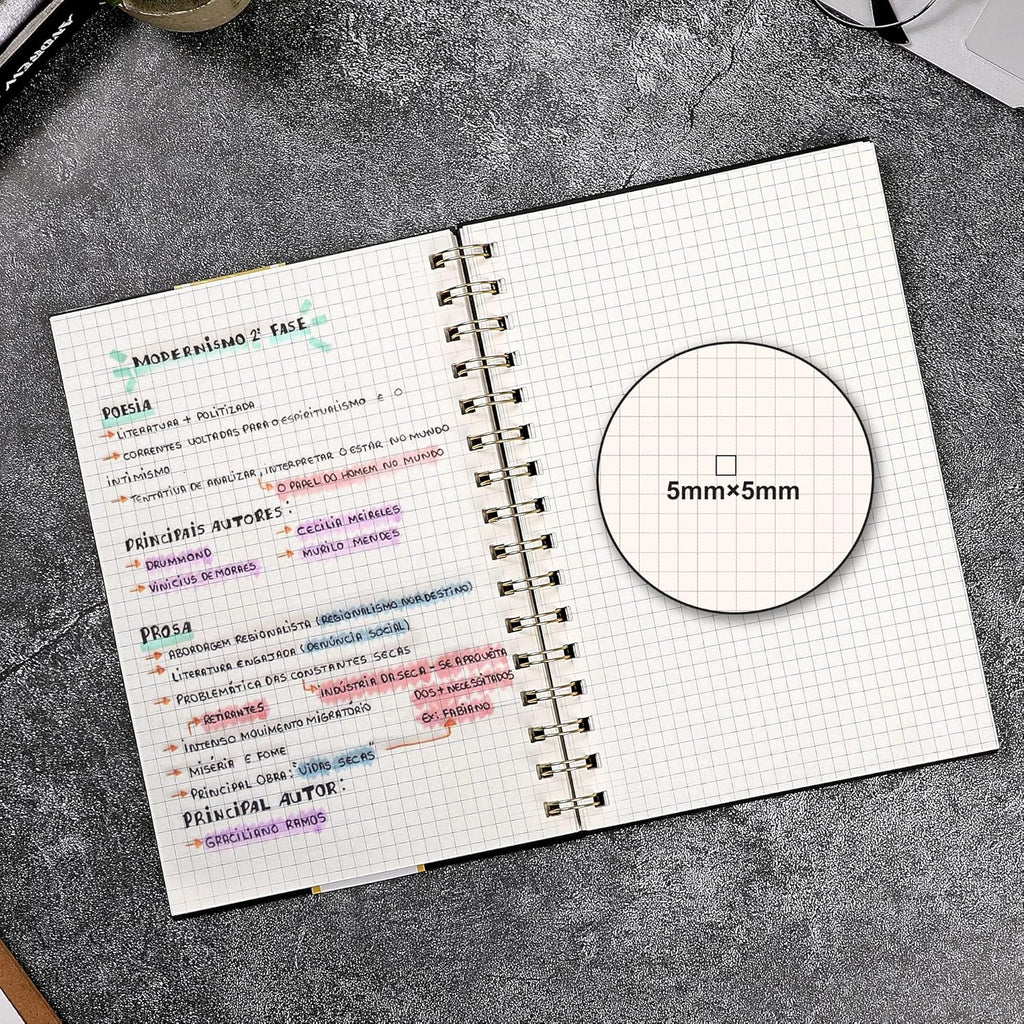 ANDREW
MODERNISMO 2ª FASE
POESIA
→ LITERATURA + POLITIZADA
→ CORRENTES VOLTADAS PARA O ESPIRITUALISMO E O
INTIMISMO
→ TENTATIVA DE ANALIZAR, INTERPRETAR O ESTAR NO MUNDO
↳ O PAPEL DO HOMEM NO MUNDO
PRINCIPAIS AUTORES:
→ DRUMMOND → CECÍLIA MEIRELES
→ VINICIUS DE MORAES → MURILO MENDES
PROSA
→ ABORDAGEM REGIONALISTA (REGIONALISMO NORDESTINO)
→ LITERATURA ENGAJADA (DENÚNCIA SOCIAL)
→ PROBLEMÁTICA DAS CONSTANTES SECAS
↳ INDÚSTRIA DA SECA - SE APROVEITA
DOS + NECESSITADOS
EX: FABIANO
RETIRANTES
→ INTENSO MOVIMENTO MIGRATÓRIO
→ MISÉRIA E FOME
→ PRINCIPAL OBRA: "VIDAS SECAS"
PRINCIPAL AUTOR:
→ GRACILIANO RAMOS
5mm×5mm